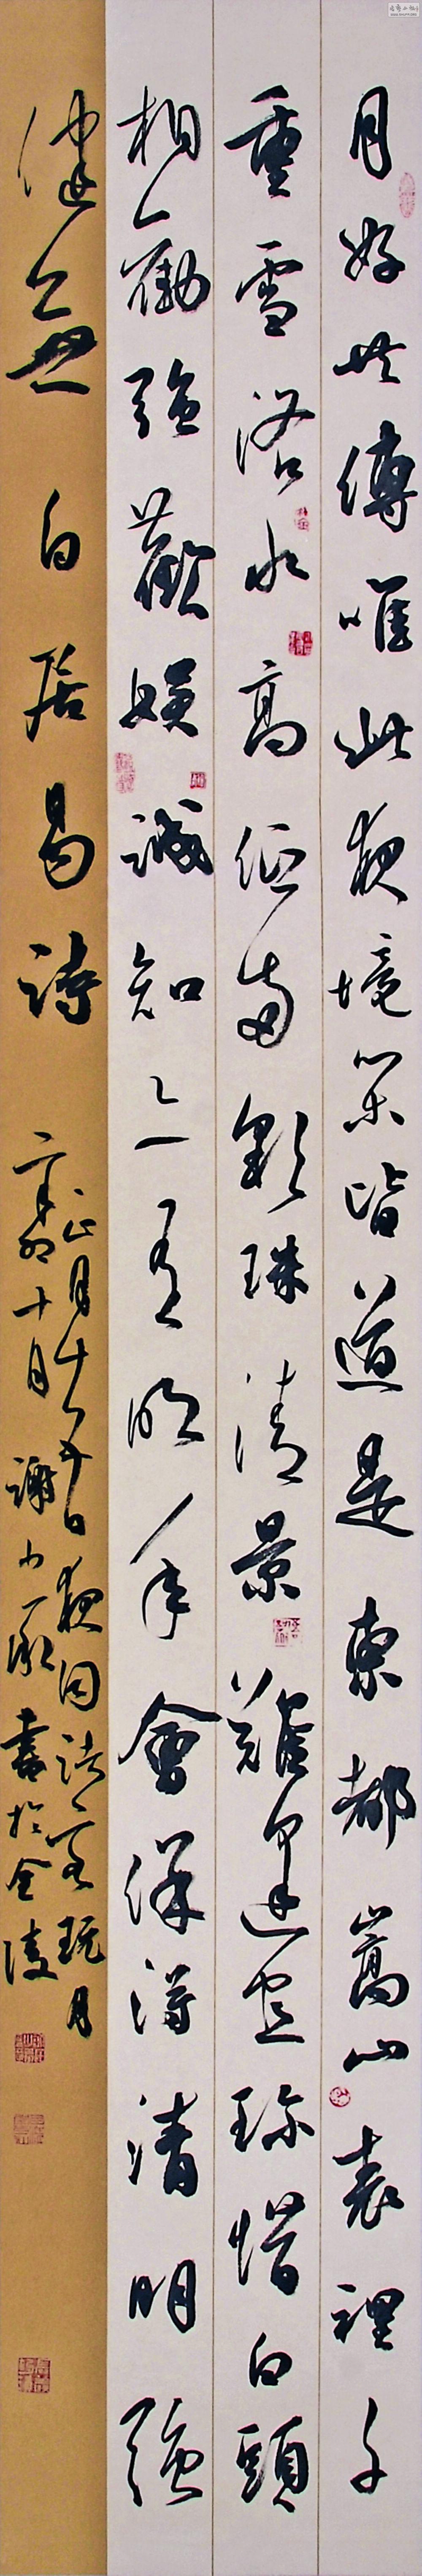 月好共傳唯此夜境閑皆道是東都嵩山表裡千
重雪洛水高低兩顆珠清景難逢宜珍惜白頭
相勸強歡娛誠知亦有明年會保得清明強
健無 白居易詩
正月十五日夜同諸客玩月
辛卯十月謝少承書於金陵